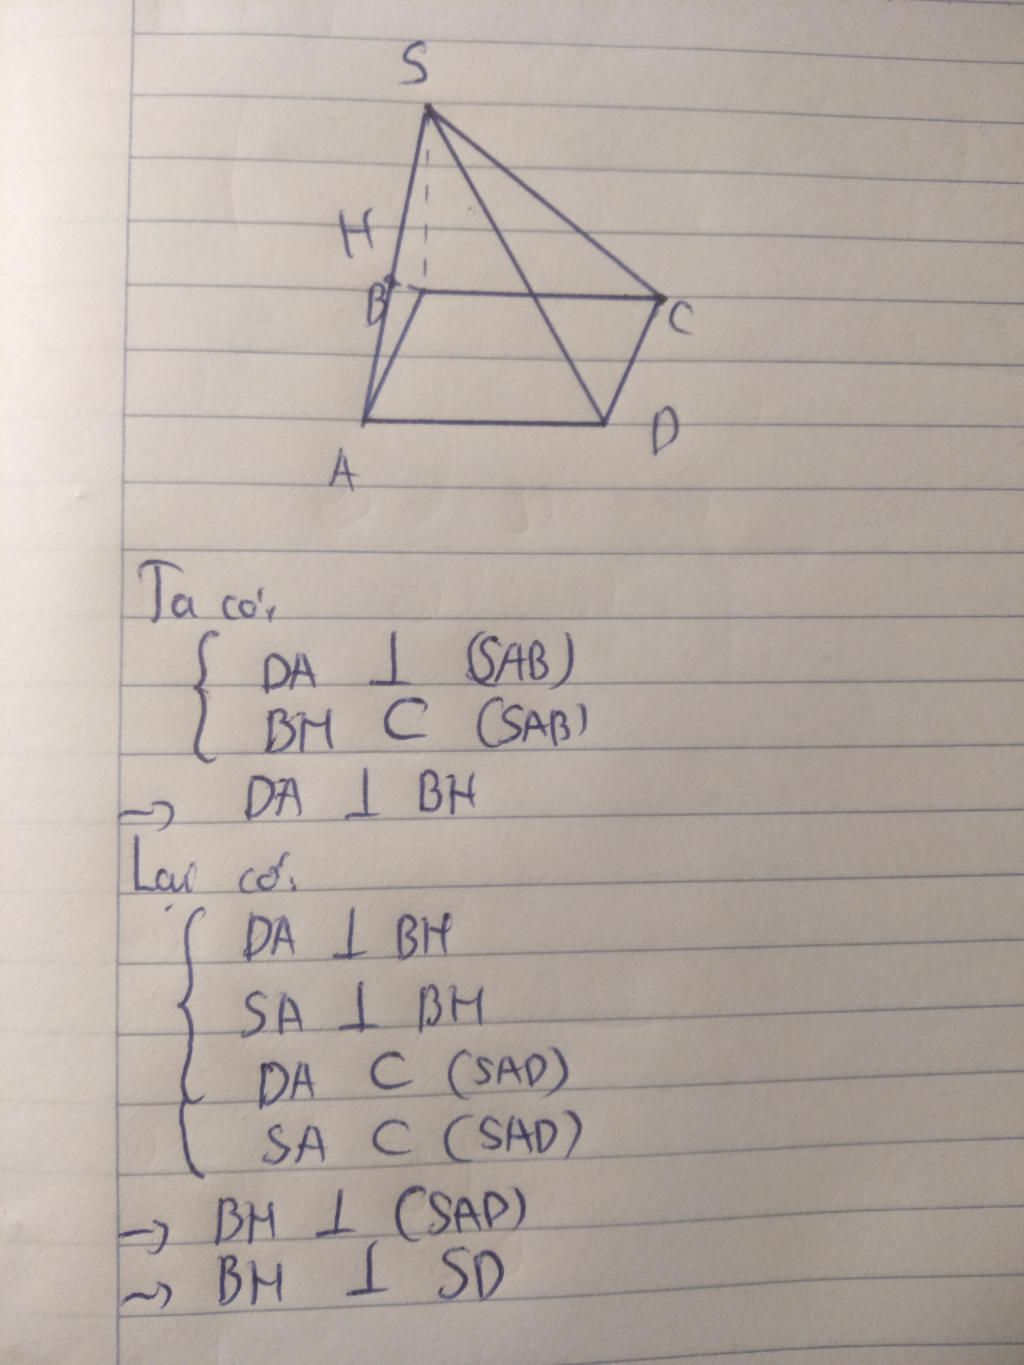 S
H
B
C
D
A
Ta có:
DA ⊥ (SAB)
BH ⊂ (SAB)
→ DA ⊥ BH
Lại có:
DA ⊥ BH
SA ⊥ BH
DA ⊂ (SAD)
SA ⊂ (SAD)
→ BH ⊥ (SAD)
→ BH ⊥ SD